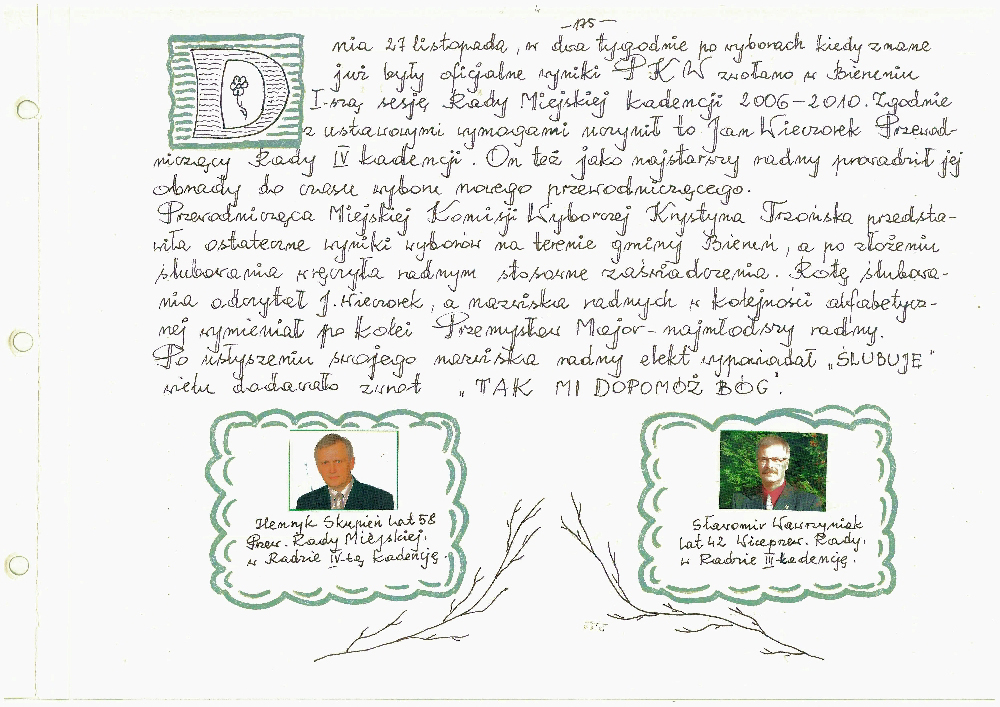 -175-
Dnia 27 listopada, w dwa tygodnie po wyborach kiedy znane
już były oficjalne wyniki PKW zwołano w Bieruniu
I-szą sesję Rady Miejskiej kadencji 2006-2010. Zgodnie
z ustawowymi wymogami uczynił to Jan Wieczorek Przewod-
niczący Rady IV kadencji. On też jako najstarszy radny prowadził jej
obrady do czasu wyboru nowego przewodniczącego.
Przewodnicząca Miejskiej Komisji Wyborczej Krystyna Trzońska przedsta-
wiła ostateczne wyniki wyborów na terenie gminy Bieruń, a po złożeniu
ślubowania wręczyła radnym stosowne zaświadczenia. Rotę ślubowa-
nia odczytał J. Wieczorek, a nazwiska radnych w kolejności alfabetycz-
nej wymieniał po kolei Przemysław Major - najmłodszy radny.
Po usłyszeniu swojego nazwiska radny elekt wypowiadał „ŚLUBUJĘ"
wielu dodawało zwrot „TAK MI DOPOMÓŻ BÓG".
Henryk Skupień lat 58
Przew. Rady Miejskiej.
w Radzie IV-tą kadencję.
Sławomir Wawrzyniak
lat 42 Wiceprzew. Rady.
w Radzie III-kadencję.